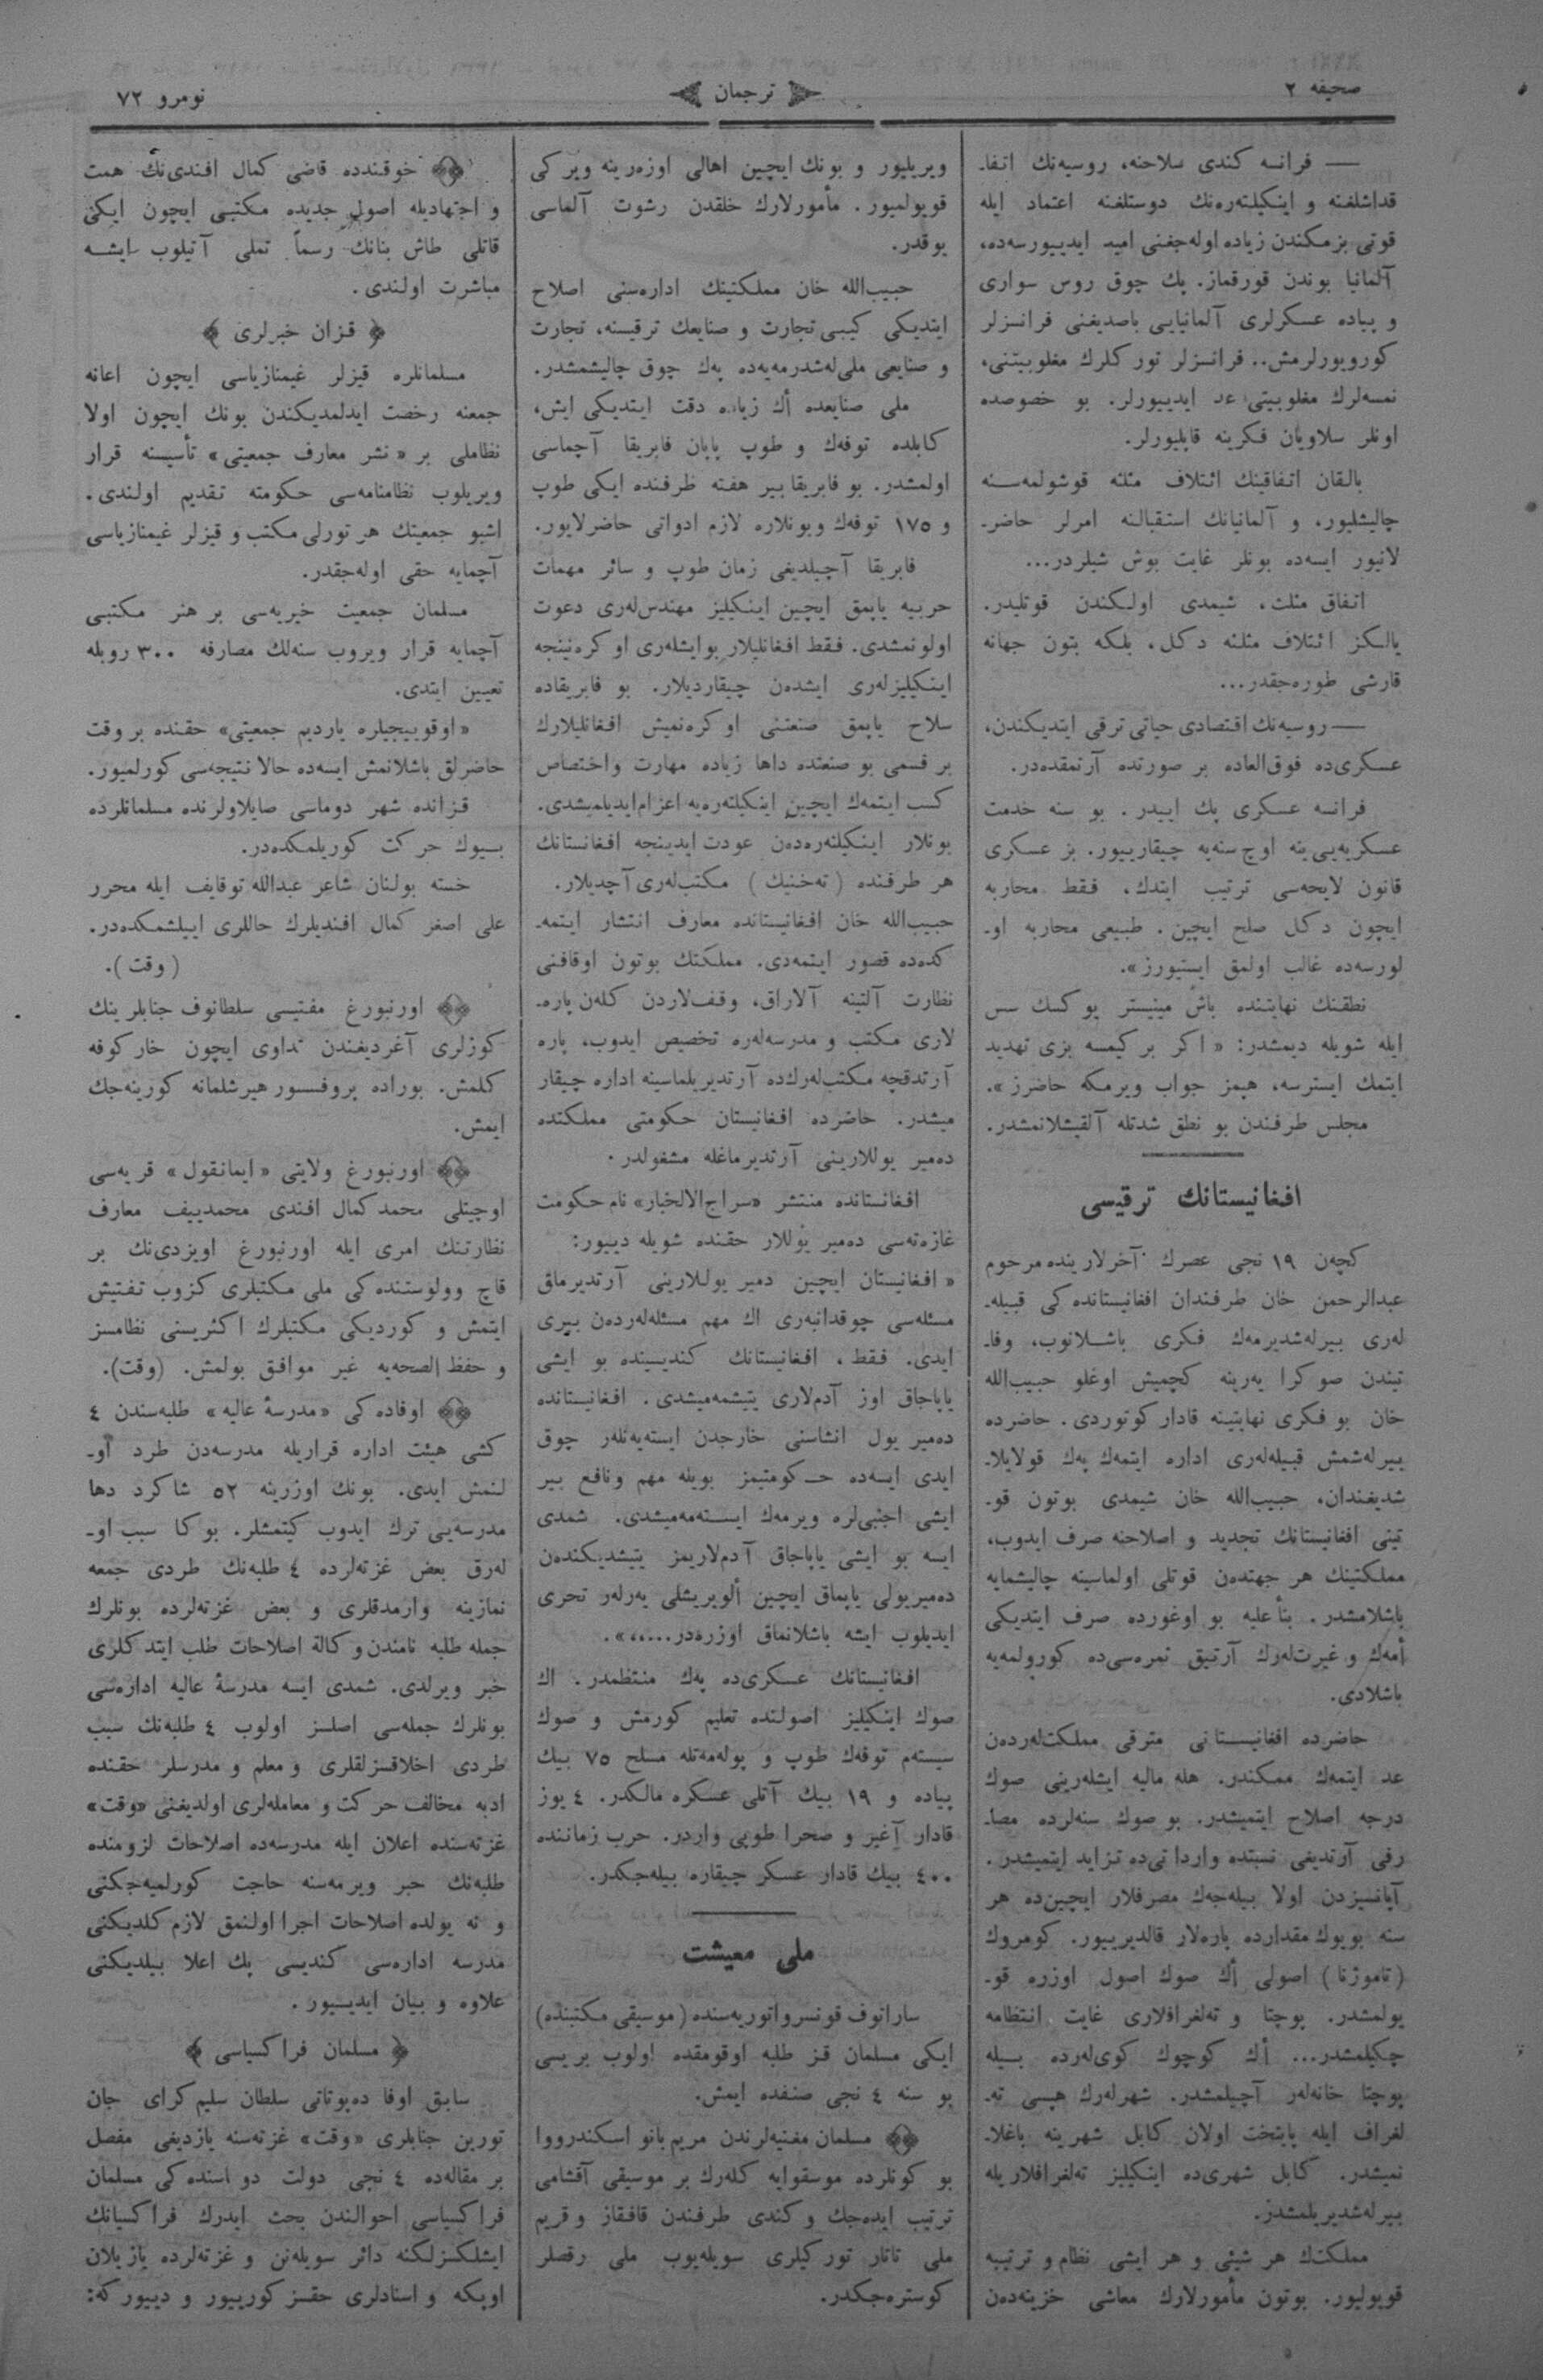 صحیفه ٢
ترجمان
نومرو ٧٢
— فرانسه كندی سلاحنه، روسیه‌نك اتفا-
قداشلغنه و اینكیلتره‌نك دوستلغنه اعتماد ایله
قوتی بزمكندن زیاده اوله‌جغنی امید ایدییورسه‌ده،
آلمانیا بوندن قورقماز. پك چوق روس سواری
و پیاده عسكرلری آلمانیایی باصدیغنی فرانسزلر
كورویورلرمش.. فرانسزلر توركلرك مغلوبیتنی،
نمسه‌لرك مغلوبیتی عد ایدییورلر. بو خصوصده
اونلر سلاویان فكرینه قاپلیورلر.
بالقان اتفاقینك ائتلاف مثلثه قوشولمه‌سنه
چالیشلیور، و آلمانیانك استقبالنه امرلر حاضر-
لانیور ایسه‌ده بونلر غایت بوش شیلردر...
اتفاق مثلث، شیمدی اولكندن قوتلیدر.
یالكز ائتلاف مثلثه دكل، بلكه بتون جهانه
قارشی طوره‌جقدر...
— روسیه‌نك اقتصادی حیاتی ترقی ایتدیكندن،
عسكری‌ده فوق‌العاده بر صورتده آرتمقده‌در.
فرانسه عسكری پك اییدر. بو سنه خدمت
عسكریه‌یی ینه اوچ سنه‌یه چیقارییور. بز عسكری
قانون لایحه‌سی ترتیب ایتدك، فقط محاربه
ایچون دكل صلح ایچین. طبیعی محاربه او-
لورسه‌ده غالب اولمق ایستیورز».
نطقنك نهایتنده باش مینیستر یوكسك سس
ایله شویله دیمشدر: «اكر بر كیمسه بزی تهدید
ایتمك ایسترسه، هپمز جواب ویرمكه حاضرز».
مجلس طرفندن بو نطق شدتله آلقیشلانمشدر.
افغانیستانك ترقیسی
كچه‌ن ١٩ نجی عصرك آخرلارینده مرحوم
عبدالرحمن خان طرفندان افغانیستانده‌كی قبیله-
له‌ری بیرله‌شدیرمه‌ك فكری باشلانوب، وفا-
تیندن صوكرا یه‌رینه كچمیش اوغلو حبیب‌الله
خان بو فكری نهایتینه قادار كوتوردی. حاضرده
بیرله‌شمش قبیله‌له‌ری اداره ایتمه‌ك په‌ك قولایلا-
شدیغندان، حبیب‌الله خان شیمدی بوتون قو-
تینی افغانیستانك تجدید و اصلاحنه صرف ایدوب،
مملكتینك هر جهتده‌ن قوتلی اولماسینه چالیشمایه
باشلامشدر. بنأعلیه بو اوغورده صرف ایتدیكی
أمه‌ك و غیرت‌له‌رك آرتیق ثمره‌سی‌ده كورولمه‌یه
باشلادی.
حاضرده افغانیستانی مترقی مملكت‌له‌رده‌ن
عد ایتمه‌ك ممكندر. هله مالیه ایشله‌رینی صوك
درجه اصلاح ایتمیشدر. بو صوك سنه‌لرده مصا-
رفی آرتدیغی نسبتده وارداتی‌ده تزاید ایتمیشدر.
آپانسیزدن اولا بیله‌جه‌ك مصرفلار ایچین‌ده هر
سنه بویوك مقدارده پاره‌لار قالدیرییور. كومروك
(تاموژنا) اصولی أك صوك اصول اوزره قو-
یولمشدر. پوچتا و ته‌لغرافلاری غایت انتظامه
چكیلمشدر... أك كوچوك كوی‌له‌رده بیله
پوچتا خانه‌له‌ر آچیلمشدر. شهرله‌رك هپسی ته-
لغراف ایله پایتخت اولان كابل شهرینه باغلا-
نمیشدر. كابل شهری‌ده اینكیلیز ته‌لغرافلاریله
بیرله‌شدیریلمشدر.
مملكتك هر شیئی و هر ایشی نظام و ترتیبه
قویولیور. بوتون مأمورلارك معاشی خزینه‌دن
ویریلیور و بونك ایچین اهالی اوزه‌رینه ویركی
قویولمیور. مأمورلارك خلقدن رشوت آلماسی
یوقدر.
حبیب‌الله خان مملكتینك اداره‌سنی اصلاح
ایتدیكی كیبی تجارت و صنایعك ترقیسنه، تجارت
و صنایعی ملی‌له‌شدرمه‌یه‌ده په‌ك چوق چالیشمشدر.
ملی صنایعده أك زیاده دقت ایتدیكی ایش،
كابلده توفه‌ك و طوپ یاپان فابریقا آچماسی
اولمشدر. بو فابریقا بیر هفته ظرفنده ایكی طوپ
و ١٧٥ توفه‌ك وبونلاره لازم ادواتی حاضرلایور.
فابریقا آچیلدیغی زمان طوپ و سائر مهمات
حربیه یاپمق ایچین اینكیلیز مهندس‌له‌ری دعوت
اولونمشدی. فقط افغانلیلار بوایشله‌ری اوكره‌نینجه
اینكیلیزله‌ری ایشده‌ن چیقاردیلار. بو فابریقاده
سلاح یاپمق صنعتنی اوكره‌نمیش افغانلیلارك
بر قسمی بو صنعتده داها زیاده مهارت واختصاص
كسب ایتمه‌ك ایچین اینكیلته‌ره‌یه اعزام‌ایدیلمیشدی.
بونلار اینكیلته‌ره‌ده‌ن عودت ایدینجه افغانستانك
هر طرفنده (ته‌خنیك) مكتب‌له‌ری آچدیلار.
حبیب‌الله خان افغانیستانده معارف انتشار ایتمه-
كده‌ده قصور ایتمه‌دی. مملكتك بوتون اوقافنی
نظارت آلتینه آلاراق، وقف‌لاردن كله‌ن پاره-
لاری مكتب و مدرسه‌له‌ره تخصیص ایدوب، پاره
آرتدقچه مكتب‌له‌رك‌ده آرتدیریلماسینه اداره چیقار
میشدر. حاضرده افغانیستان حكومتی مملكتده
ده‌میر یوللارینی آرتدیرماغله مشغولدر.
افغانستانده منتشر «سراج‌الاخبار» نام حكومت
غازه‌ته‌سی ده‌میر یوللار حقنده شویله دییور:
«افغانیستان ایچین دمیر یوللارینی آرتدیرماق
مسئله‌سی چوقدانبه‌ری اك مهم مسئله‌له‌رده‌ن بیری
ایدی. فقط، افغانیستانك كندیسینده بو ایشی
یاپاجاق اوز آدم‌لاری یتیشمه‌میشدی. افغانیستانده
ده‌میر یول انشاسنی خارجدن ایسته‌یه‌نله‌ر چوق
ایدی ایسه‌ده حكومتیمز بویله مهم ونافع بیر
ایشی اجنبی‌لره ویرمه‌ك ایسته‌مه‌میشدی. شمدی
ایسه بو ایشی یاپاجاق آدم‌لاریمز یتیشدیكنده‌ن
ده‌میریولی یاپماق ایچین ألویریشلی یه‌رله‌ر تحری
ایدیلوب ایشه باشلانماق اوزره‌در.....».
افغانیستانك عسكری‌ده په‌ك منتظمدر. اك
صوك اینكیلیز اصولنده تعلیم كورمش و صوك
سیسته‌م توفه‌ك طوپ و پوله‌مه‌تله مسلح ٧٥ بیك
پیاده و ١٩ بیك آتلی عسكره مالكدر. ٤ یوز
قادار آغیر و صحرا طوپی واردر. حرب زماننده
٤٠٠ بیك قادار عسكر چیقاره بیله‌جكدر.
ملی معیشت
ساراتوف قونسرواتوریه‌سنده (موسیقی مكتبنده)
ایكی مسلمان قز طلبه اوقومقده اولوب بریسی
بو سنه ٤ نجی صنفده ایمش.
مسلمان مغنیه‌لرندن مریم‌بانو اسكندرووا
بو كونلرده موسقوایه كله‌رك بر موسیقی آقشامی
ترتیب ایده‌جك و كندی طرفندن قافقاز و قریم
ملی تاتار توركیلری سویله‌یوب ملی رقصلر
كوستره‌جكدر.
خوقندده قاضی كمال افندی‌نك همت
و اجتهادیله اصول جدیده مكتبی ایچون ایكی
قاتلی طاش بنانك رسماً تملی آتیلوب ایشه
مباشرت اولندی.
قزان خبرلری
مسلمانلره قیزلر غیمنازیاسی ایچون اعانه
جمعنه رخصت ایدلمدیكندن بونك ایچون اولا
نظاملی بر «نشر معارف جمعیتی» تأسیسنه قرار
ویریلوب نظامنامه‌سی حكومته تقدیم اولندی.
اشبو جمعیتك هر تورلی مكتب و قیزلر غیمنازیاسی
آچمایه حقی اوله‌جقدر.
مسلمان جمعیت خیریه‌سی بر هنر مكتبی
آچمایه قرار ویروب سنه‌لك مصارفه ٣٠٠ روبله
تعیین ایتدی.
«اوقوییجیلره یاردیم جمعیتی» حقنده بر وقت
حاضرلق باشلانمش ایسه‌ده حالا نتیجه‌سی كورلمیور.
قزانده شهر دوماسی صایلاولرنده مسلمانلرده
بیوك حركت كوریلمكده‌در.
خسته بولنان شاعر عبدالله توقایف ایله محرر
علی اصغر كمال افندیلرك حاللری اییلشمكده‌در.
(وقت).
اورنبورغ مفتیسی سلطانوف جنابلرینك
كوزلری آغردیغندن تداوی ایچون خاركوفه
كلمش. بوراده پروفسسور هیرشلمانه كورینه‌جك
ایمش.
اورنبورغ ولایتی «ایمانقول» قریه‌سی
اوچیتلی محمدكمال افندی محمدییف معارف
نظارتنك امری ایله اورنبورغ اویزدی‌نك بر
قاچ وولوستنده‌كی ملی مكتبلری كزوب تفتیش
ایتمش و كوردیكی مكتبلرك اكثریسنی نظامسز
و حفظ الصحه‌یه غیر موافق بولمش. (وقت).
اوفاده‌كی «مدرسهٔ عالیه» طلبه‌سندن ٤
كشی هیئت اداره قراریله مدرسه‌دن طرد او-
لنمش ایدی. بونك اوزرینه ٥٢ شاكرد دها
مدرسه‌یی ترك ایدوب كیتمشلر. بوكا سبب او-
له‌رق بعض غزته‌لرده ٤ طلبه‌نك طردی جمعه
نمازینه وارمدقلری و بعض غزته‌لرده بونلرك
جمله طلبه نامندن وكالة اصلاحات طلب ایتدكلری
خبر ویرلدی. شمدی ایسه مدرسهٔ عالیه اداره‌سی
بونلرك جمله‌سی اصلسز اولوب ٤ طلبه‌نك سبب
طردی اخلاقسزلقلری و معلم و مدرسلر حقنده
ادبه مخالف حركت و معامله‌لری اولدیغنی «وقت»
غزته‌سنده اعلان ایله مدرسه‌ده اصلاحات لزومنده
طلبه‌نك خبر ویرمه‌سنه حاجت كورلمیه‌جكنی
و نه یولده اصلاحات اجرا اولنمق لازم كلدیكنی
مدرسه اداره‌سی كندیسی پك اعلا بیلدیكنی
علاوه و بیان ایدییور.
مسلمان فراكسیاسی
سابق اوفا ده‌پوتاتی سلطان سلیم‌كرای جان
تورین جنابلری «وقت» غزته‌سنه یازدیغی مفصل
بر مقاله‌ده ٤ نجی دولت دوماسنده‌كی مسلمان
فراكسیاسی احوالندن بحث ایدرك فراكسیانك
ایشلكسزلكنه دائر سویله‌نن و غزته‌لرده یازیلان
اوپكه و اسنادلری حقسز كورییور و دییوركه: